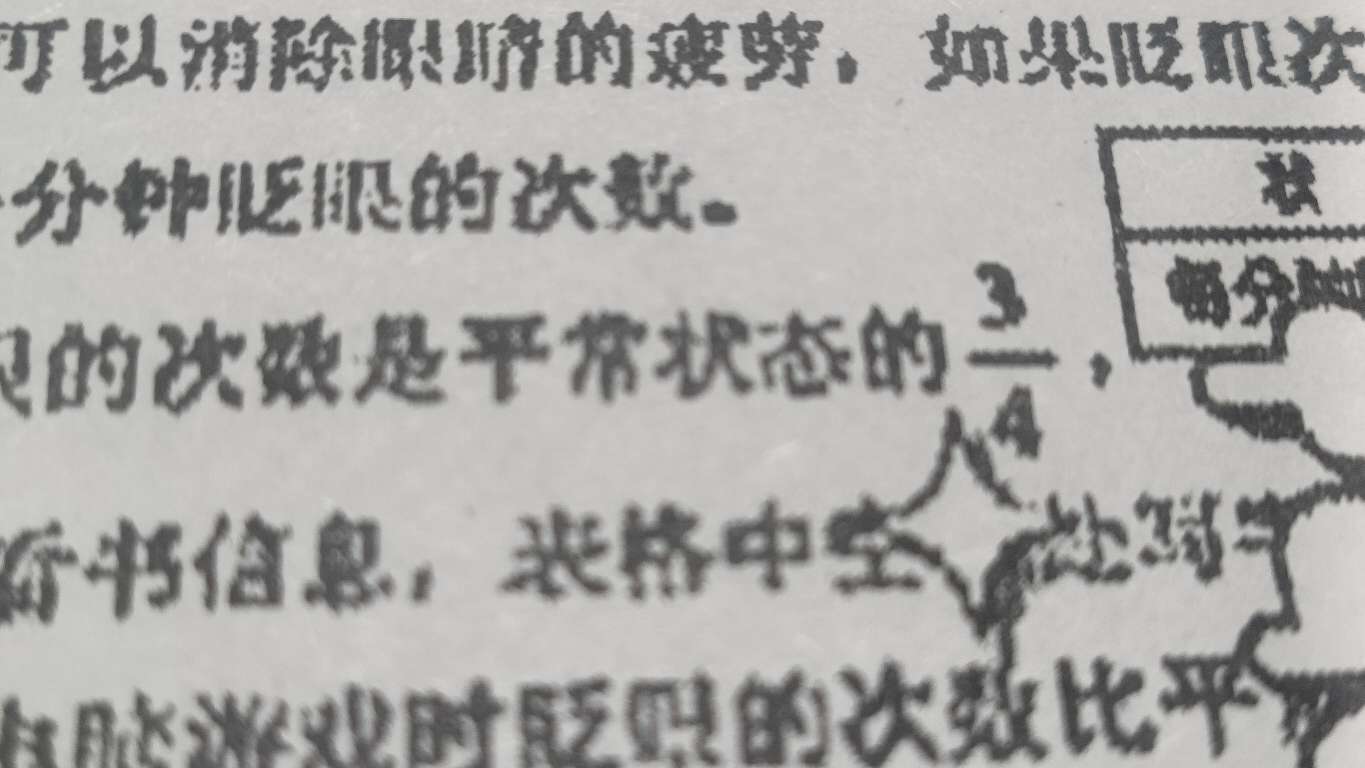 可以消除眼睛的疲劳，如果眨眼次
分钟眨眼的次数。
状
每分钟
的次数是平常状态的3/4，
看书信息，表格中空
处写
电脑游戏时眨眼的次数比平